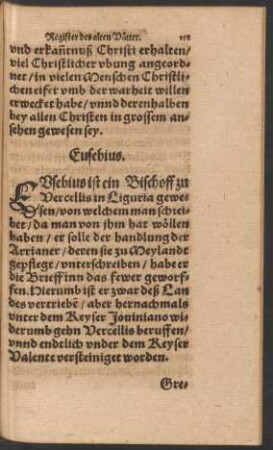 Register des alten Vätter.
vnd erkañtnuß Christi erhalten/
viel Christlicher vbung angeord-
net/in vielen Menschen Christli-
chen eifer vmb der warheit willen
erwecket habe/vnnd derenhalben
bey allen Christen in grossem an-
sehen gewesen sey.
Eusebius.
EVsebius ist ein Bischoff zu
Vercellis in Liguria gewe-
sen/von welchem man schrei-
bet/da man von jhm hat wöllen
haben/er solle der handlung der
Arrianer/deren sie zu Meylandt
gepflegt/vnterschreiben/habe er
die Brieff inn das fewer geworf-
fen. Hierumb ist er zwar deß Lan
des vertriebẽ/aber hernachmals
vnter dem Keyser Jouiniano wi
derumb gehn Vercellis beruffen/
vnnd endtlich vnder dem Keyser
Valente versteiniget worden.
Gre-